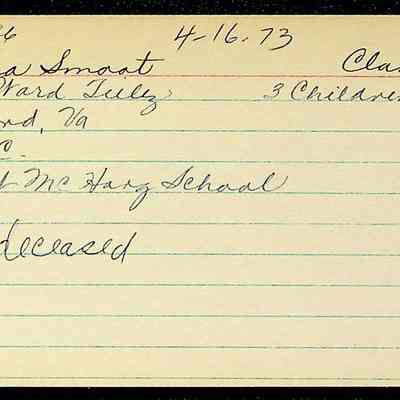 26 4-16.73
a Smoot Clas
Ward 3 Children
rd, Va
c.
t Mc Harg School
deceased